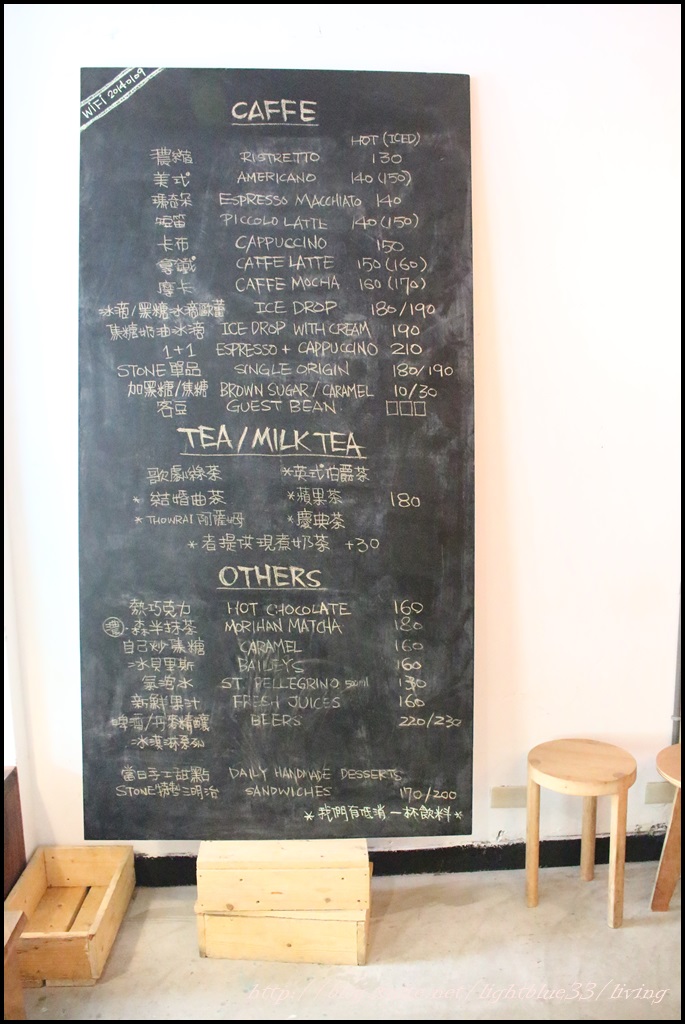 WIFI 20140109
CAFFE
HOT (ICED)
濃縮 RISTRETTO 130
美式 AMERICANO 140 (150)
瑪奇朵 ESPRESSO MACCHIATO 140
短笛 PICCOLO LATTE 140 (150)
卡布 CAPPUCCINO 150
拿鐵 CAFFE LATTE 150 (160)
摩卡 CAFFE MOCHA 160 (170)
冰滴/黑糖冰滴歐蕾 ICE DROP 180/190
焦糖奶油冰滴 ICE DROP WITH CREAM 190
1+1 ESPRESSO + CAPPUCCINO 210
STONE單品 SINGLE ORIGIN 180/190
加黑糖/焦糖 BROWN SUGAR / CARAMEL 10/30
客豆 GUEST BEAN □□□
TEA/MILK TEA
歌劇綠茶 *英式伯爵茶
*結婚曲茶 *蘋果茶 180
*THOWRAI 阿薩姆 *慶典茶
*者提供現煮奶茶 +30
OTHERS
熱巧克力 HOT CHOCOLATE 160
濃·森半抹茶 MORIHAN MATCHA 180
自己炒焦糖 CARAMEL 160
冰貝里斯 BAILEYS 160
氣泡水 ST. PELLEGRINO 500ml 130
新鮮果汁 FRESH JUICES 160
啤酒/丹麥精釀 BEERS 220/230
冰淇淋系列
當日手工甜點 DAILY HANDMADE DESSERTS
STONE特製三明治 SANDWICHES 170/200
*我們有低消一杯飲料*
lightblue33/living